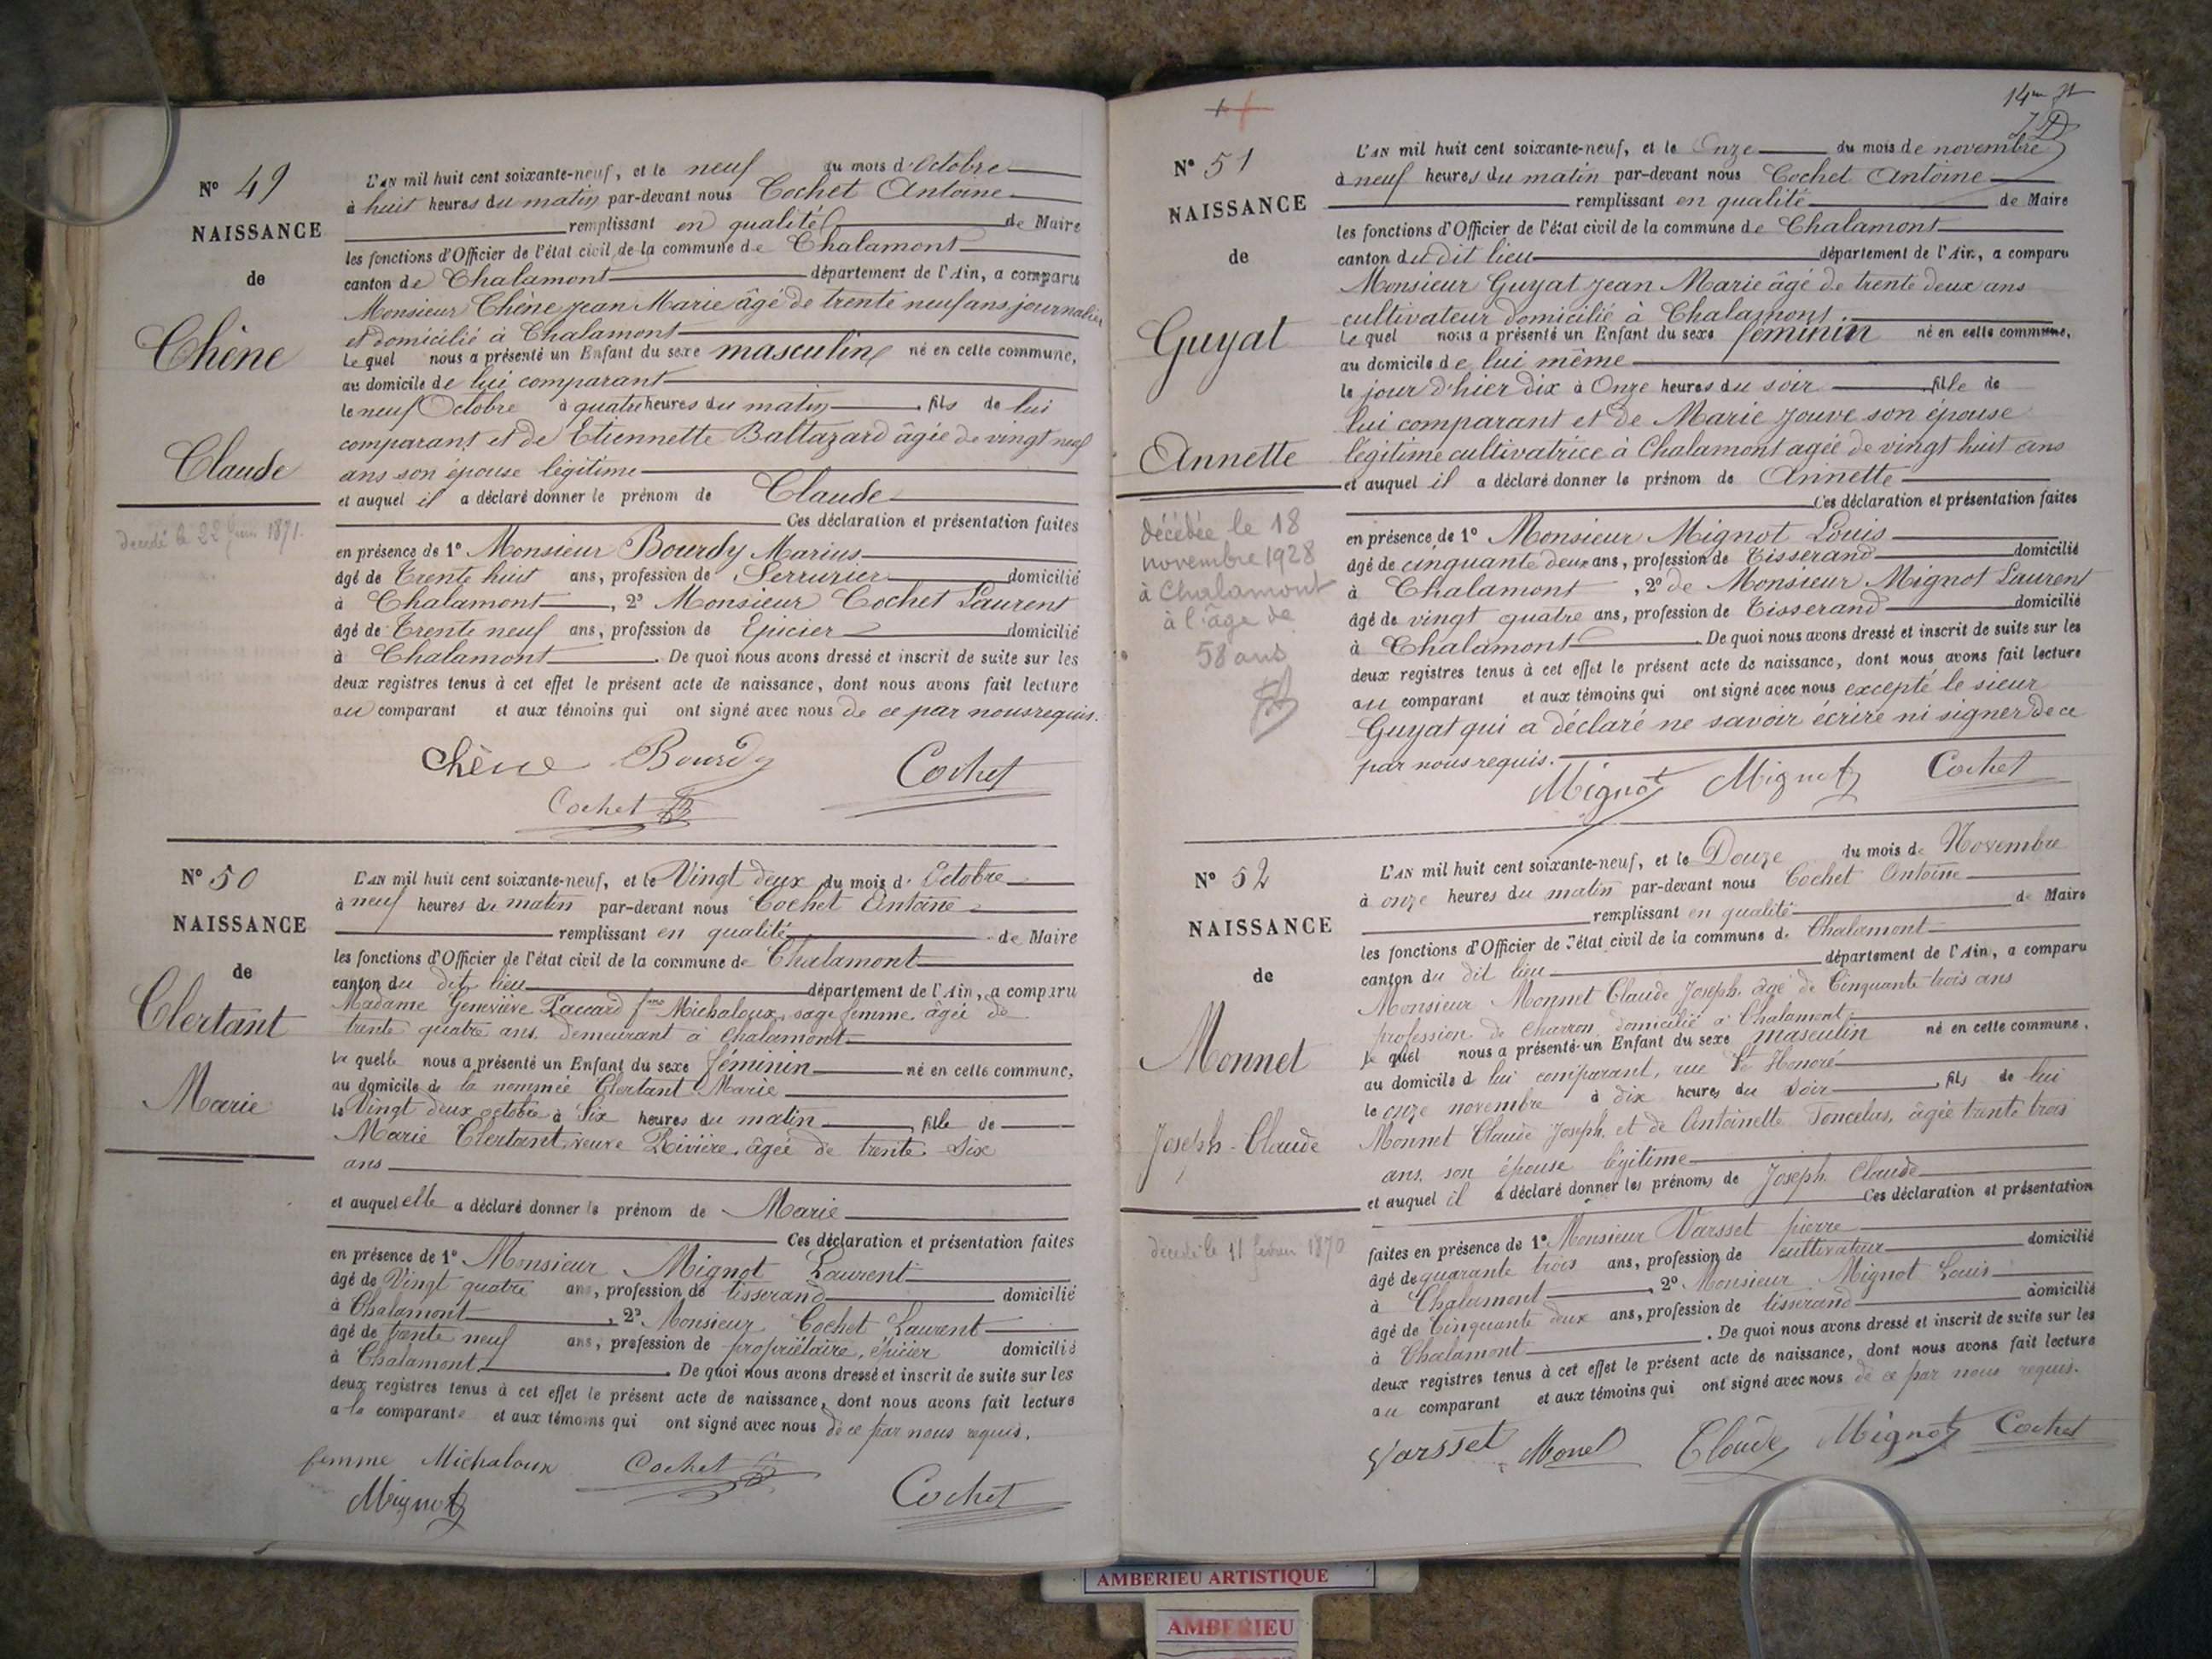 N° 49
NAISSANCE
de
Chêne
Claude
décédé le 22 1871.
L'AN mil huit cent soixante-neuf, et le neuf du mois d'Octobre
à huit heures du matin par-devant nous Cochet Antoine
remplissant en qualité de Maire
les fonctions d'Officier de l'état civil de la commune de Chalamont
canton de Chalamont département de l'Ain, a comparu
Monsieur Chêne Jean Marie âgé de trente neuf ans journalier
et domicilié à Chalamont
Lequel nous a présenté un Enfant du sexe masculin né en cette commune,
au domicile de lui comparant
le neuf Octobre à quatre heures du matin fils de lui
comparant et de Etiennette Baltazard âgée de vingt neuf
ans son épouse légitime
et auquel il a déclaré donner le prénom de Claude
Ces déclaration et présentation faites
en présence de 1° Monsieur Bourdy Marius
âgé de Trente huit ans, profession de Serrurier domicilié
à Chalamont, 2° Monsieur Cochet Laurent
âgé de Trente neuf ans, profession de Epicier domicilié
à Chalamont. De quoi nous avons dressé et inscrit de suite sur les
deux registres tenus à cet effet le présent acte de naissance, dont nous avons fait lecture
au comparant et aux témoins qui ont signé avec nous de ce par nous requis.
Chêne Bourdy Cochet
Cochet
N° 50
NAISSANCE
de
Clertant
Marie
L'AN mil huit cent soixante-neuf, et le Vingt deux du mois d'Octobre
à neuf heures du matin par-devant nous Cochet Antoine
remplissant en qualité de Maire
les fonctions d'Officier de l'état civil de la commune de Chalamont
canton du dit lieu département de l'Ain, a comparu
Madame Geneviève Paccard fme Michaloux, sage femme, âgée de
trente quatre ans, demeurant à Chalamont
laquelle nous a présenté un Enfant du sexe féminin né en cette commune,
au domicile de la nommée Clertant Marie
le Vingt deux octobre à Six heures du matin, fille de
Marie Clertant, veuve Rivière, âgée de trente Six
ans
et auquel elle a déclaré donner le prénom de Marie
Ces déclaration et présentation faites
en présence de 1° Monsieur Mignot Laurent
âgé de Vingt quatre ans, profession de tisserand domicilié
à Chalamont, 2° Monsieur Cochet Laurent
âgé de trente neuf ans, profession de propriétaire, épicier domicilié
à Chalamont. De quoi nous avons dressé et inscrit de suite sur les
deux registres tenus à cet effet le présent acte de naissance, dont nous avons fait lecture
a la comparante et aux témoins qui ont signé avec nous de ce par nous requis.
femme Michaloux Cochet
Mignot Cochet
14me
N° 51
NAISSANCE
de
Guyat
Annette
décédée le 18
novembre 1928
à Chalamont
à l'âge de
58 ans
L'AN mil huit cent soixante-neuf, et le Onze du mois de novembre
à neuf heures du matin par-devant nous Cochet Antoine
remplissant en qualité de Maire
les fonctions d'Officier de l'état civil de la commune de Chalamont
canton du dit lieu département de l'Ain, a comparu
Monsieur Guyat Jean Marie âgé de trente deux ans
cultivateur domicilié à Chalamont.
Lequel nous a présenté un Enfant du sexe féminin né en cette commune,
au domicile de lui même
le jour d'hier dix à Onze heures du soir fille de
lui comparant et de Marie Jouve son épouse
légitime cultivatrice à Chalamont agée de vingt huit ans
et auquel il a déclaré donner le prénom de Annette
Ces déclaration et présentation faites
en présence de 1° Monsieur Mignot Louis
âgé de cinquante deux ans, profession de Tisserand domicilié
à Chalamont, 2° de Monsieur Mignot Laurent
âgé de vingt quatre ans, profession de Tisserand domicilié
à Chalamont. De quoi nous avons dressé et inscrit de suite sur les
deux registres tenus à cet effet le présent acte de naissance, dont nous avons fait lecture
au comparant et aux témoins qui ont signé avec nous excepté le sieur
Guyat qui a déclaré ne savoir écrire ni signer de ce
par nous requis.
Mignot Mignot Cochet
N° 52
NAISSANCE
de
Monnet
Joseph-Claude
décédé le 11 février 1870
L'AN mil huit cent soixante-neuf, et le Douze du mois de Novembre
à onze heures du matin par-devant nous Cochet Antoine
remplissant en qualité de Maire
les fonctions d'Officier de l'état civil de la commune de Chalamont
canton du dit lieu département de l'Ain, a comparu
Monsieur Monnet Claude Joseph, âgé de Cinquante trois ans
profession de Charron, domicilié à Chalamont,
lequel nous a présenté un Enfant du sexe masculin né en cette commune,
au domicile d lui comparant, rue St Honoré
le onze novembre à dix heures du Soir, fils de lui
Monnet Claude Joseph, et de Antoinette Toncelas, âgée trente trois
ans, son épouse légitime
et auquel il a déclaré donner les prénoms de Joseph Claude
Ces déclaration et présentation
faites en présence de 1° Monsieur Varsset pierre
âgé de quarante trois ans, profession de cultivateur domicilié
à Chalamont, 2° Monsieur Mignot Louis
âgé de Cinquante deux ans, profession de tisserand domicilié
à Chalamont. De quoi nous avons dressé et inscrit de suite sur les
deux registres tenus à cet effet le présent acte de naissance, dont nous avons fait lecture
au comparant et aux témoins qui ont signé avec nous de ce par nous requis.
Varsset Monet Cloude Mignot Cochet
AMBERIEU ARTISTIQUE
AMBERIEU